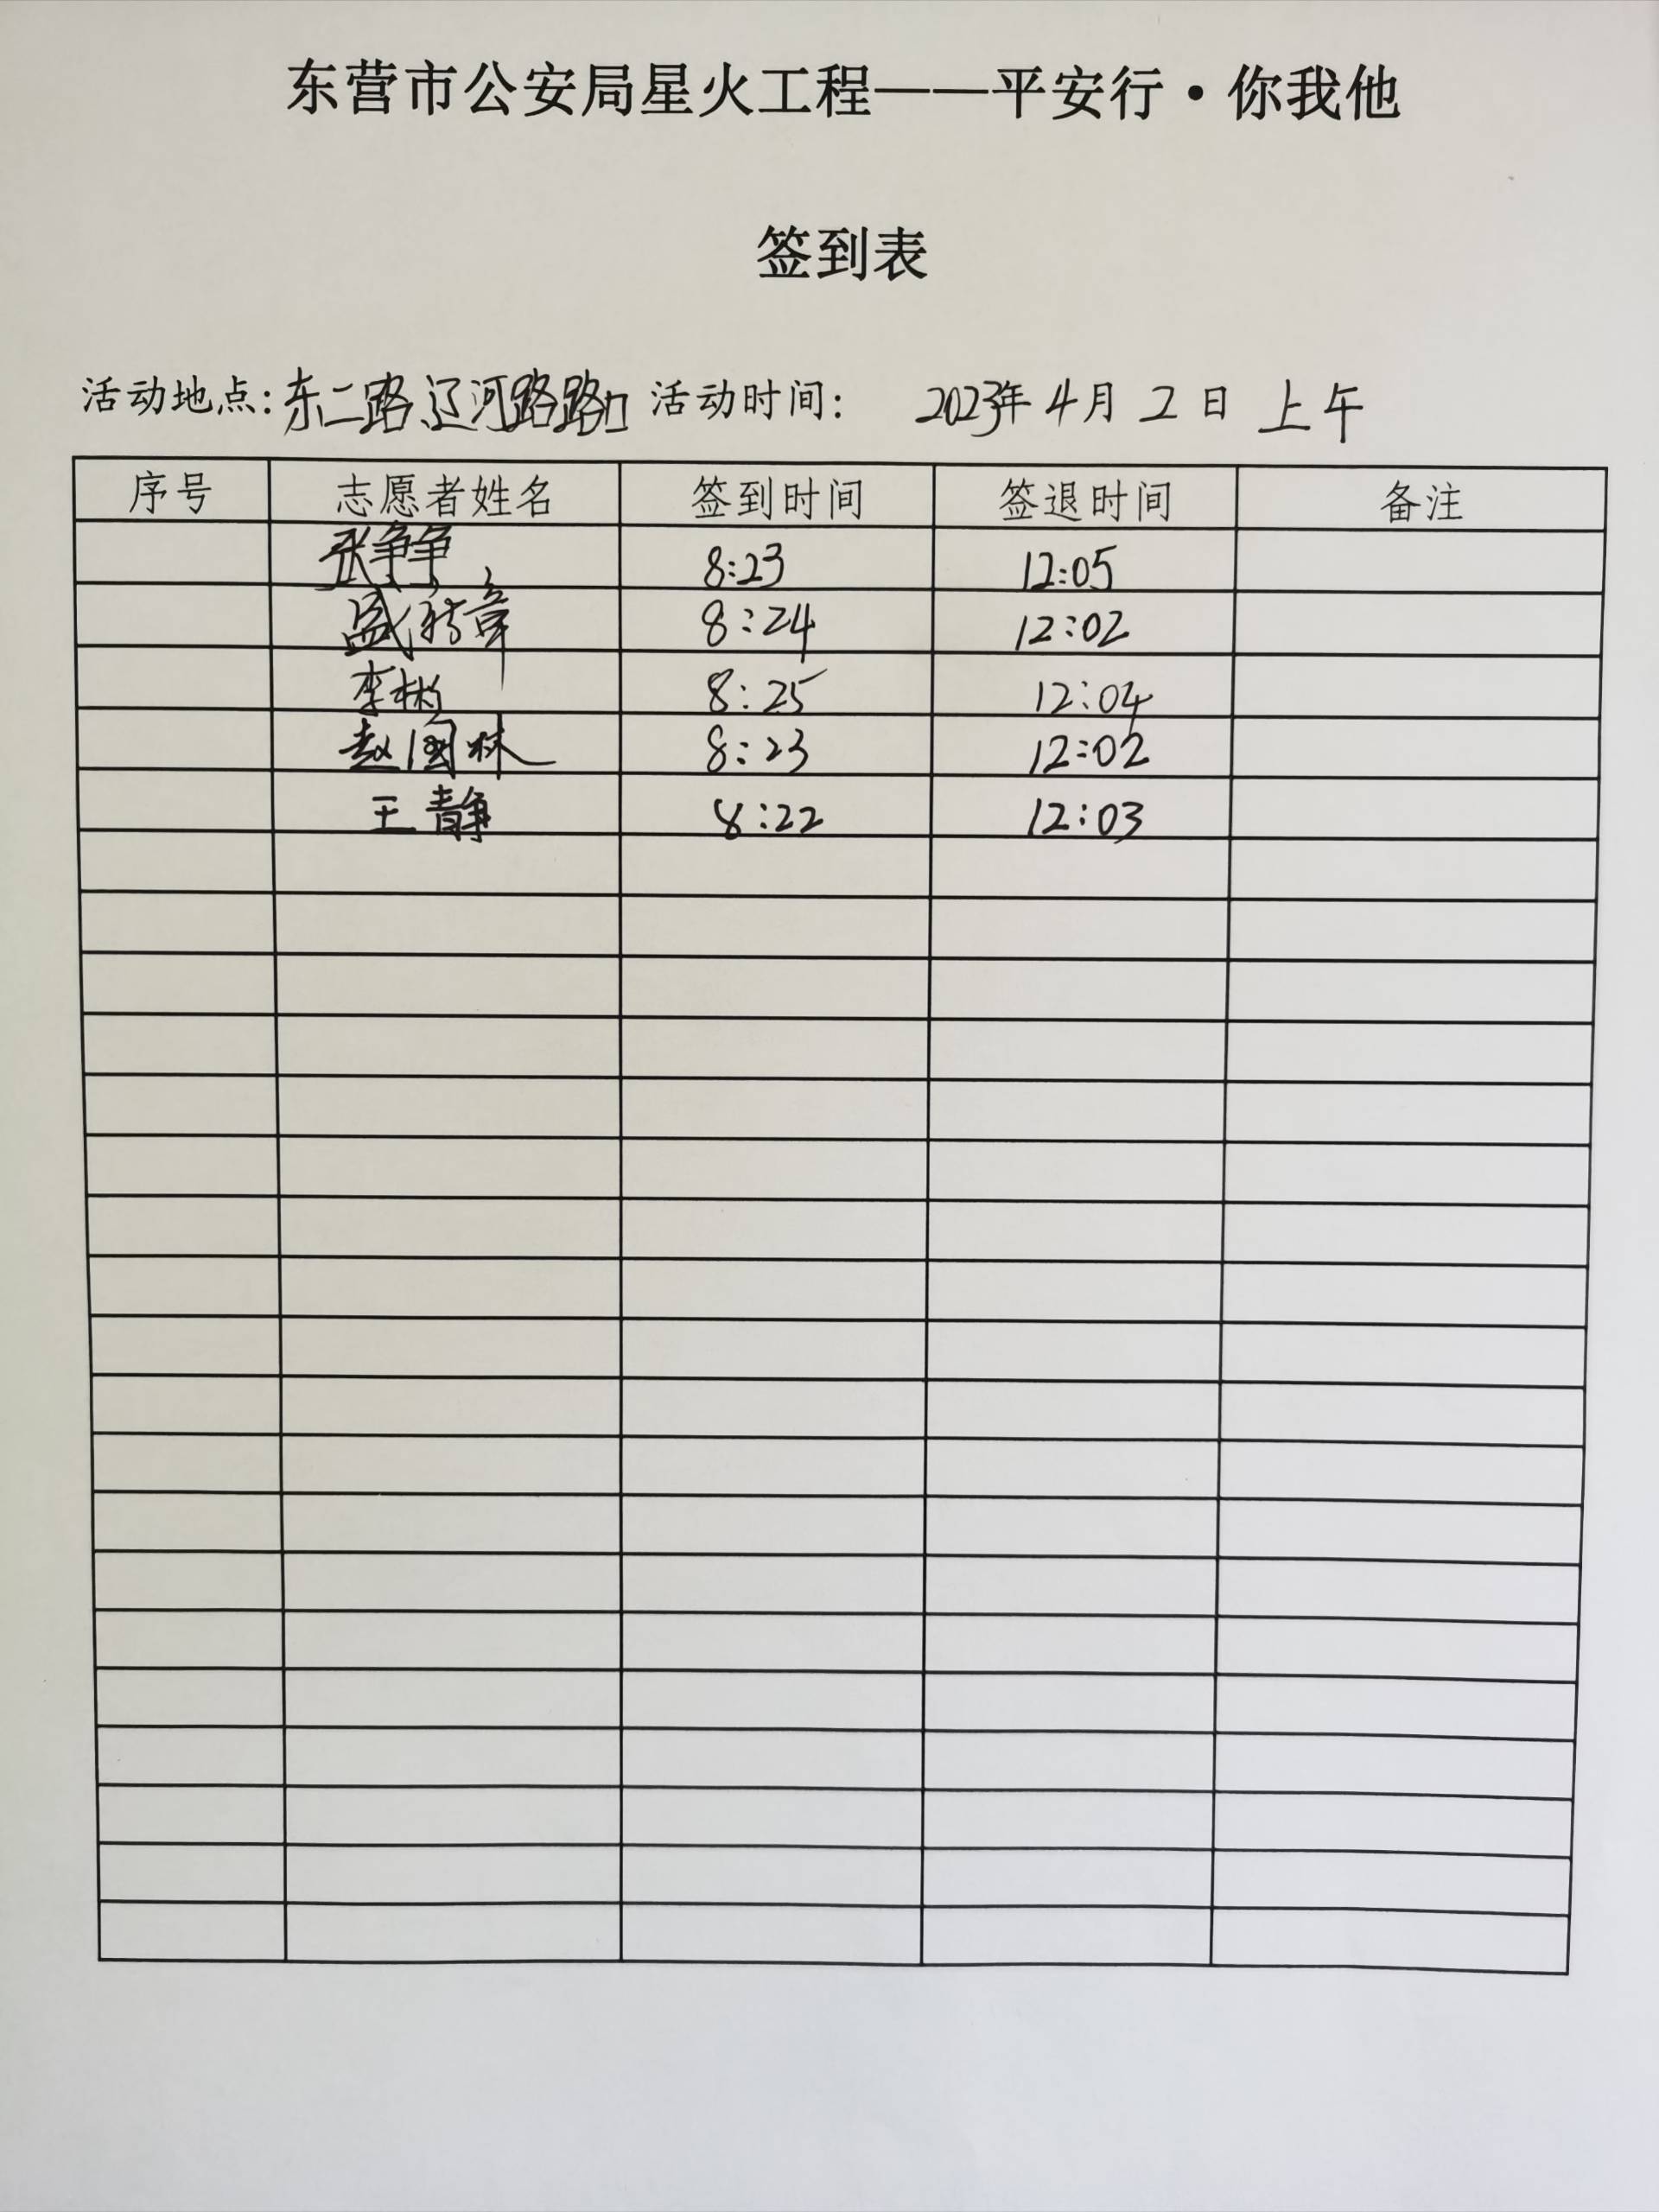 东营市公安局星火工程——平安行·你我他
签到表
活动地点:东二路、辽河路路口 活动时间: 2023年4月2日 上午
序号 志愿者姓名 签到时间 签退时间 备注
张争争 8:23 12:05
盛 章 8:24 12:02
李 8:25 12:04
赵国林 8:23 12:02
王静 8:22 12:03